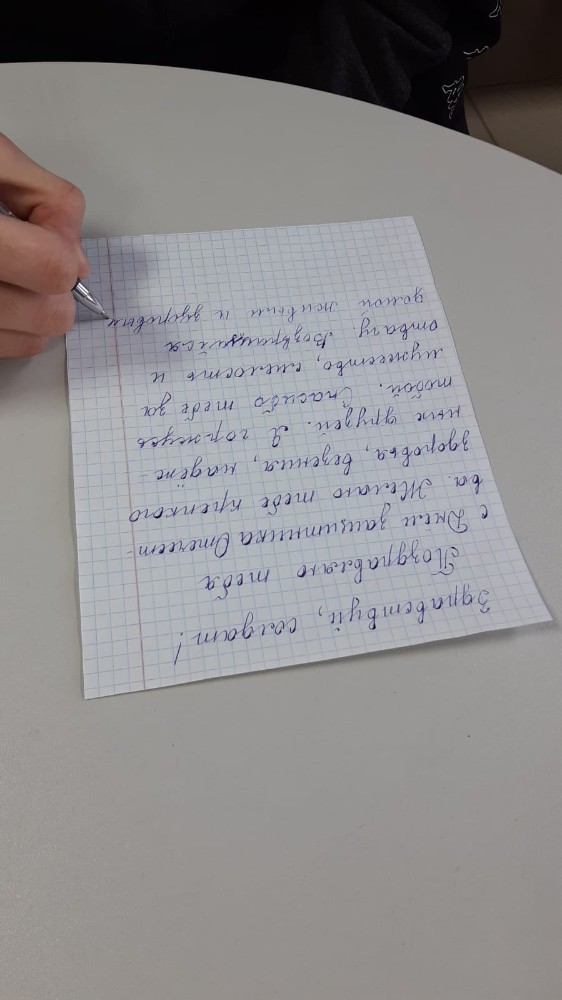 Здравствуй, солдат!
Поздравляю тебя
с Днем защитника Отечест-
ва. Желаю тебе крепкого
здоровья, везения, надёж-
ных друзей. Я горжусь
тобой. Спасибо тебе за
мужество, смелость и
отвагу. Возвращайся
домой живым и здоровым